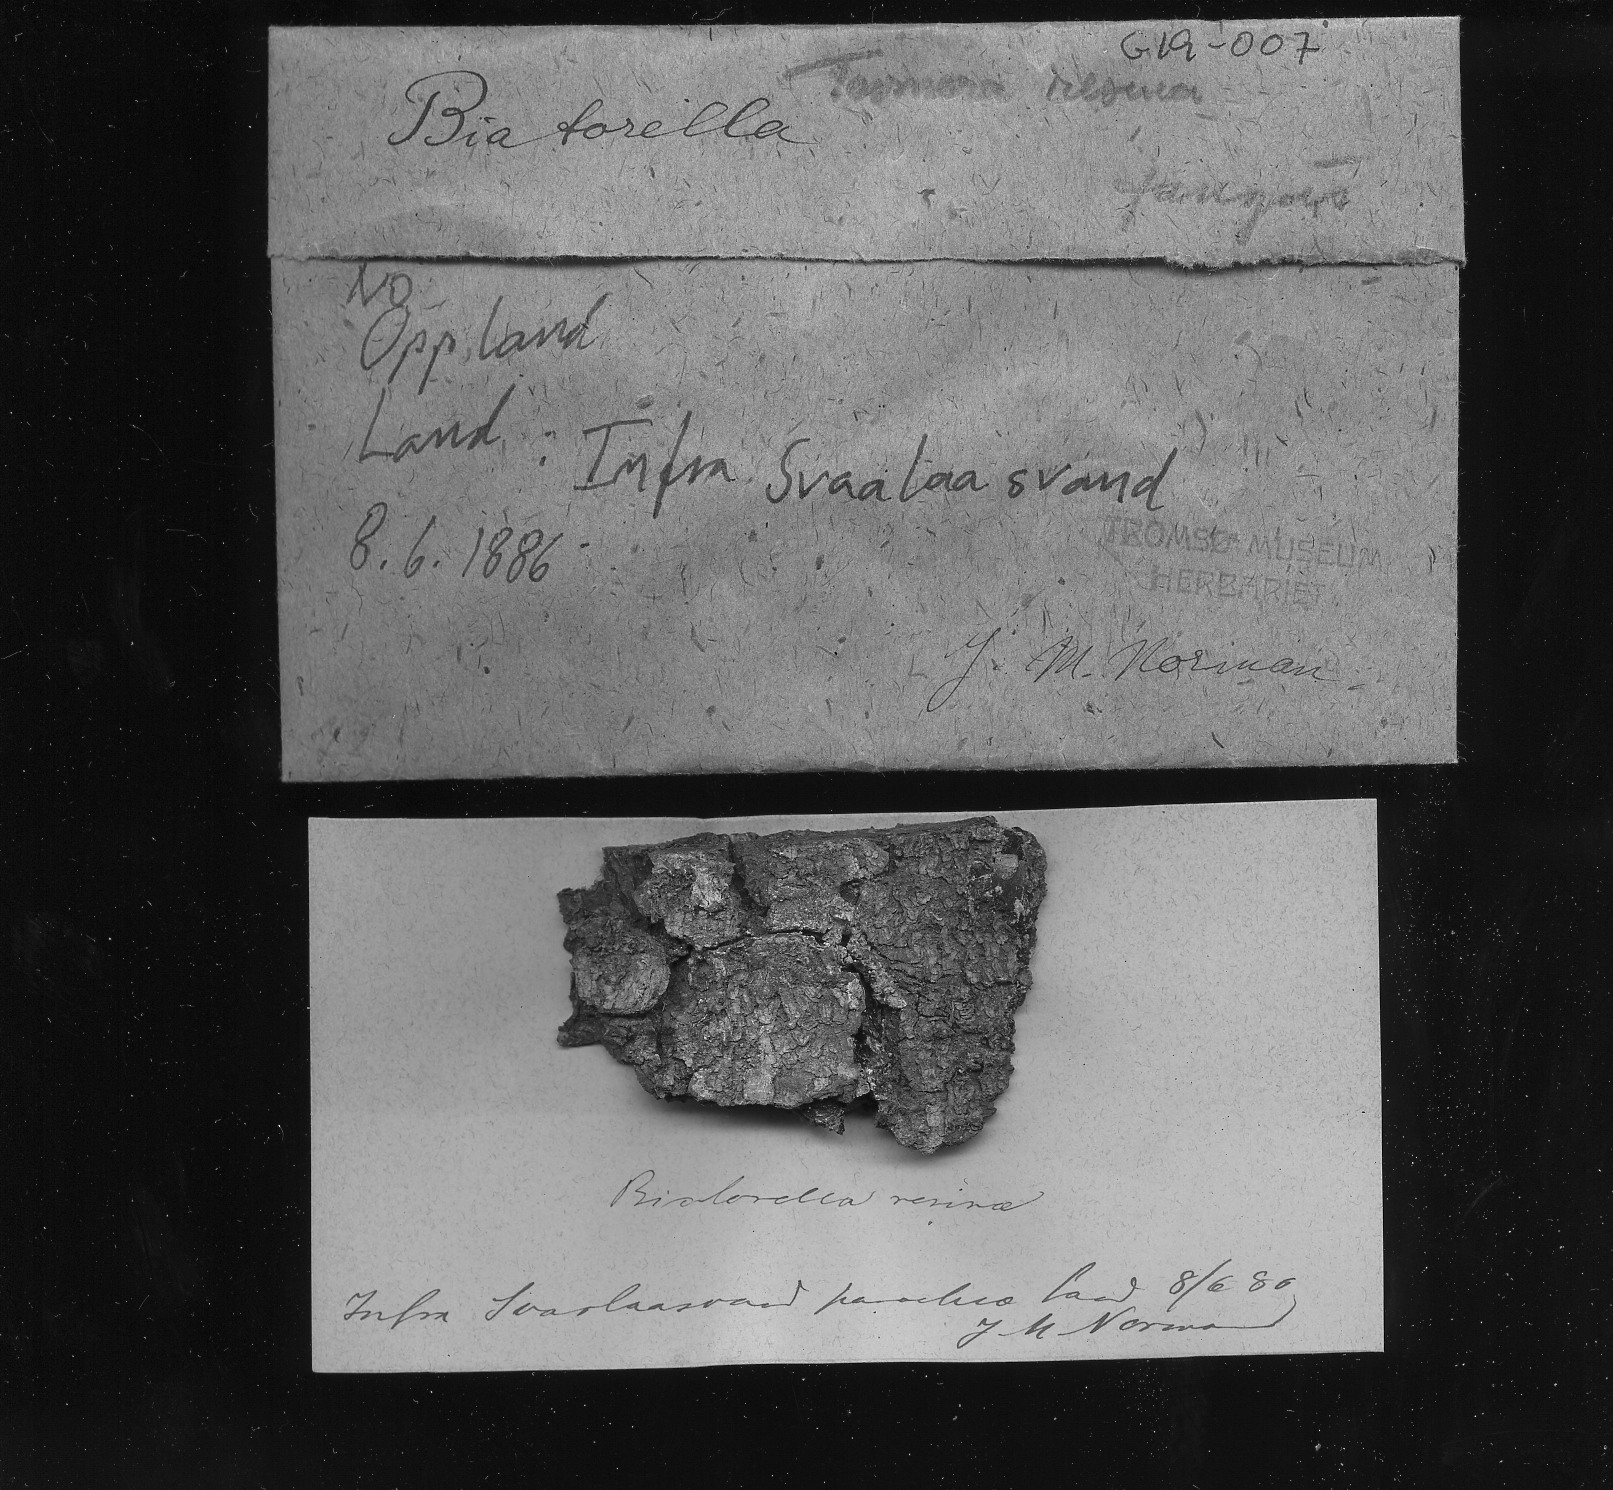 G19-007
Biatorella
No
Oppland
Land : Infra Svaataasvand
8.6.1886
TROMSØ MUSEUM
HERBARIET
J. M. Norman.
Biatorella resinæ
Infra Svaataasvand parochiæ Land 8/6 86
J M Norman